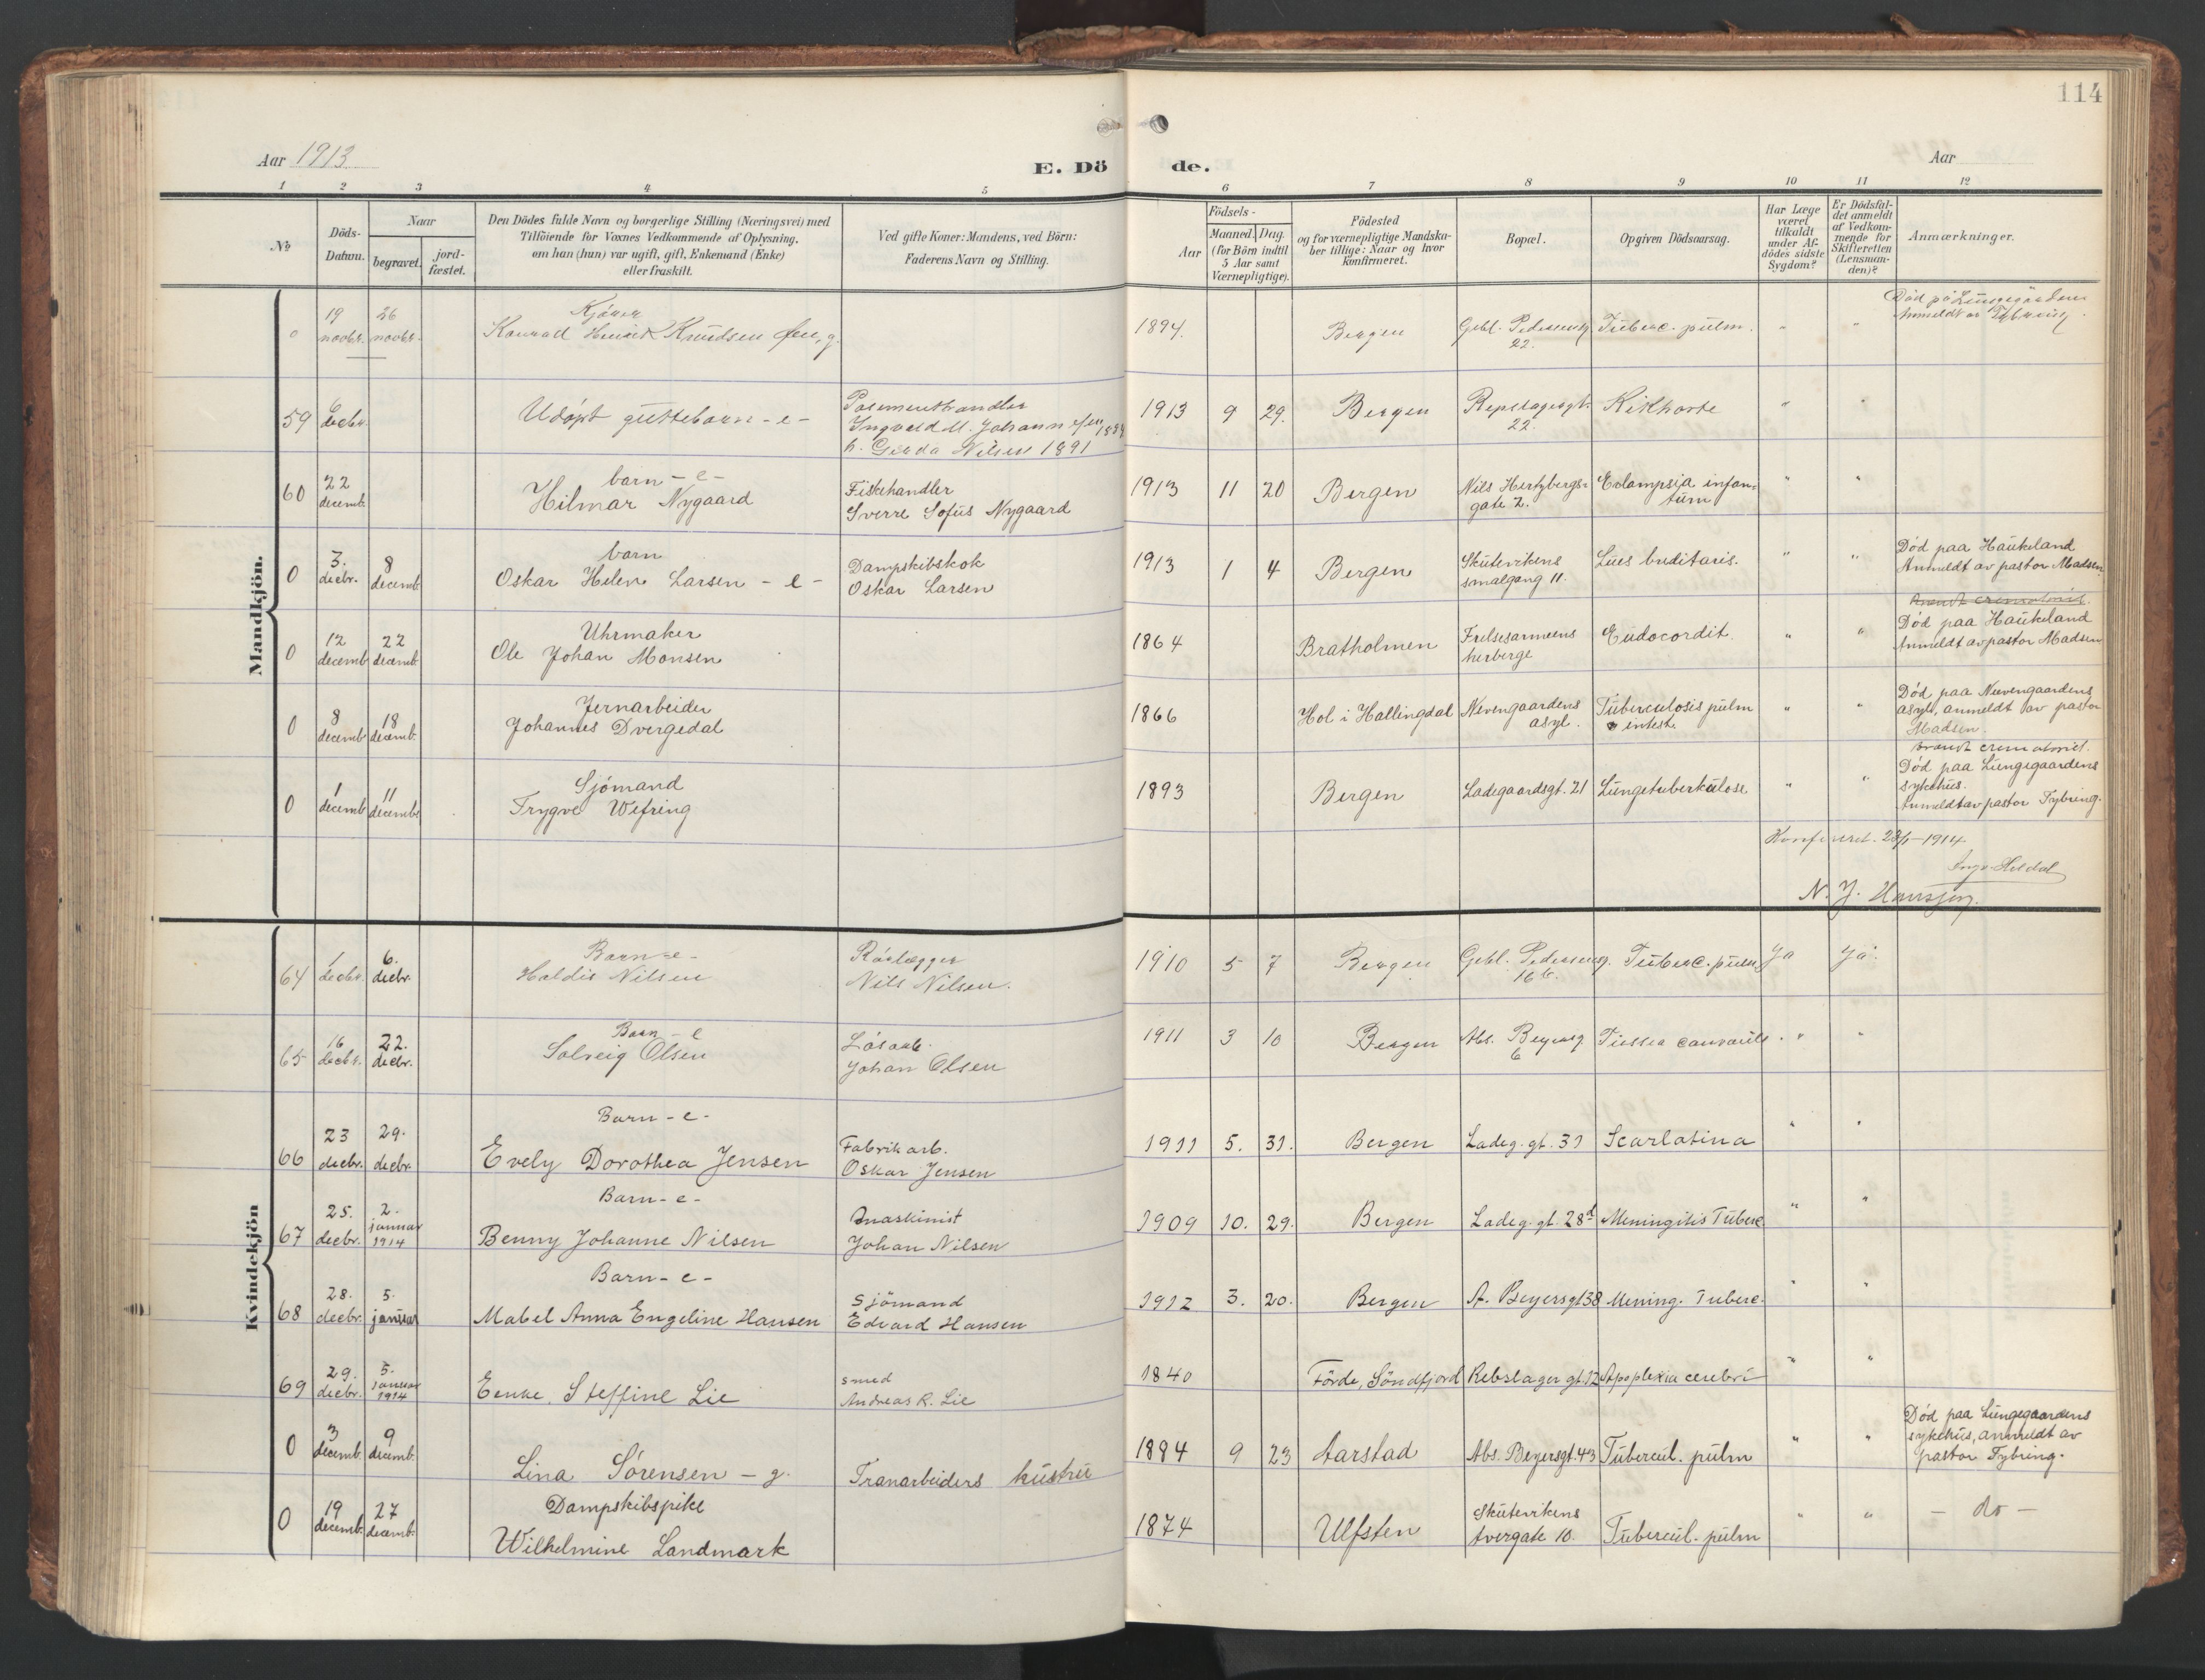 114
Aar 1913
E. Dö de.
Aar
1 2 3 4 5 6 7 8 9 10 11 12
No
Döds-Datum.
Naar
begravet.
jord-fæstet.
Den Dödes fulde Navn og borgerlige Stilling (Næringsvei) med
Tilföiende for Voxnes Vedkommende af Oplysning,
om han (hun) var ugift, gift, Enkemand (Enke)
eller fraskilt.
Ved gifte Koner: Mandens, ved Börn:
Faderens Navn og Stilling.
Födsels-
Aar
Maaned. Dag.
(for Börn indtil
5 Aar samt
Værnepligtige).
Födested
og for værnepligtige Mandska-
ber tillige: Naar og hvor
konfirmeret.
Bopæl.
Opgiven Dödsaarsag.
Har Læge
været
tilkaldt
under Af-
dödes sidste
Sygdom?
Er Dödsfal-
det anmeldt
af Vedkom-
mende for
Skifteretten
(Lensman-
den)?
Anmærkninger.
Mandkjön.
0 19 novbr. 26 novbr. Kjörer
Konrad Henrik Knudsen g. 1894. Bergen Gebl. Pedersensg 22. Tuberc. pulm. " " Död på Lungegården
Anmeldt av Tybring
59 6 decbr. Udöpt guttebarn - e - Posementhandler
Ingvald M. Johannesen
h. Gerda Nilsen 1891 1913 9 29. Bergen Repslagergt. 22. Kikhoste " "
60 22 decemb. barn - e -
Hilmar Nygaard Fiskehandler
Sverre Sofus Nygaard 1913 11 20 Bergen Nils Hertzbergs-
gate 2. Eclampsia infan-
tum " "
0 3. decbr. 8 decemb. barn
Oskar Helen Larsen - e - Dampskibskok
Oskar Larsen 1913 1 4 Bergen Skutevikens
smalgang 11. Lues heriditaris. " " Död paa Haukeland
Anmeldt av pastor Madsen
0 12 decemb. 22 decemb. Uhrmaker
Ole Johan Monsen 1864 Bratholmen Frelsesarmeens
herberge Endocordit. " " Död paa Haukeland
Anmeldt av pastor Madsen
0 8 decemb. 18 decemb. Jernarbeider
Johannes Dvergedal 1866 Hol i Hallingdal Nevengaardens
asyl. Tuberculosis pulm
intest. " " Död paa Nevengaardens
asyl, anmeldt av pastor
Madsen.
brændt crematoriet.
0 1 decemb. 11 decembr Sjömand
Trygve Wefring 1893 Bergen Ladegaardsgt. 21 Lungetuberkulose " " Död paa Lungegaardens
sykehus.
Anmeldt av pastor Tybring.
Konfereret. 23/1-1914.
N. J. Hanssen.
Kvindekjön
64 1 decbr. 6. decbr. Barn - e -
Haldis Nilsen Rörlægger
Nils Nilsen. 1910 5 7 Bergen Gebl. Pedersensg. 16 b. Tuberc. pulm Ja Ja.
65 16 decbr. 22. decbr. Barn - e
Solveig Olsen Lösarb.
Johan Olsen 1911 3 10 Bergen Abs. Beyersg 6 Tussea convuls. " "
66 23 decbr. 29. decbr. Barn - e -
Evely Dorothea Jensen Fabrikarb.
Oskar Jensen 1911 5. 31. Bergen Ladeg. gt. 31 Scarlatina " "
67 25. decbr. 2. januar 1914 Barn - e -
Benny Johanne Nilsen Maskinist
Johan Nilsen 1909 10. 29. Bergen Ladeg. gt. 28d Meningitis Tuberc. " "
68 28. decbr. 5. januar Barn - e -
Mabel Anna Engeline Hansen Sjömand
Edvard Hansen 1912 3. 20. Bergen A. Beyersgt 38 Mening. Tuberc. " "
69 29. decbr. 5. januar 1914 Enke. Steffine Lie smed
Andreas R. Lie 1840 Förde, Söndfjord Rebslager gt. 12 Apoplexia cerebri " "
0 3 decemb. 9 decemb. Lina Sörensen - g. Tranarbeiders hustru 1884 9 23 Aarstad Abs. Beyersgt. 43 Tubercul. pulm " " Död paa Lungegaardens
sykehus, anmeldt av
pastor Tybring.
0 19 decemb. 27 decemb. Dampskibspike
Wilhelmine Landmark 1874 Ulfsten Skutevikens
tvergate 10. Tubercul. pulm " " - do -